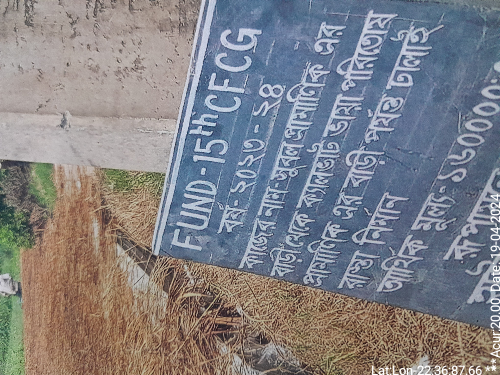 FUND-15th CFCG
বর্ষ:- ২০২৩ - ২৪
কাজের নাম:- সুবল প্রামাণিক এর
বাড়ী থেকে কালভার্ট ভায়া পরিতোষ
প্রামাণিক এর বাড়ী পর্যন্ত ঢালাই
রাস্তা নির্মান
আর্থিক মূল্য:-
Lat Lon-22.36:87.66
Date:19-04-2024